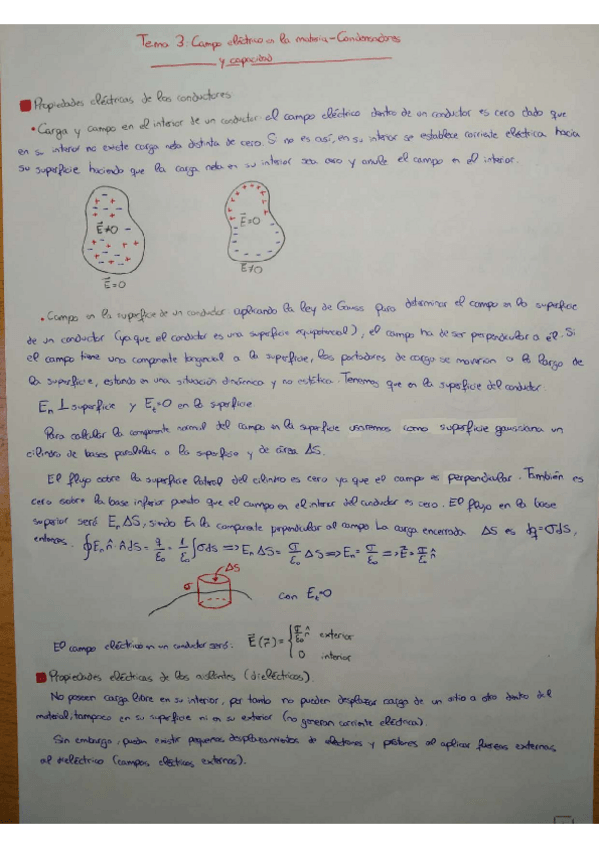 Tema 3: Campo eléctrico en la materia - Condensadores
y capacidad
Propiedades eléctricas de los conductores
• Carga y campo en el interior de un conductor: el campo eléctrico dentro de un conductor es cero dado que
en su interior no existe carga neta distinta de cero. Si no es así, en su interior se establece corriente eléctrica hacia
su superficie haciendo que la carga neta en su interior sea cero y anule el campo en el interior.
E⃗≠0
E⃗=0
E⃗=0
E⃗≠0
• Campo en la superficie de un conductor: aplicando la ley de Gauss para determinar el campo en la superficie
de un conductor (ya que el conductor es una superficie equipotencial), el campo ha de ser perpendicular a él. Si
el campo tiene una componente tangencial a la superficie, los portadores de carga se moverían a lo largo de
la superficie, estando en una situación dinámica y no estática. Tenemos que en la superficie del conductor:
En ⊥ superficie y Et=0 en la superficie
Para calcular la componente normal del campo en la superficie usaremos como superficie gaussiana un
cilindro de bases paralelas a la superficie y de área ΔS.
El flujo sobre la superficie lateral del cilindro es cero ya que el campo es perpendicular. También es
cero sobre la base inferior puesto que el campo en el interior del conductor es cero. El flujo en la base
superior será En ΔS, siendo En la componente perpendicular al campo. La carga encerrada ΔS es dq=σds,
entonces: ∮En n̂·n̂ds = q/ε₀ = 1/ε₀ ∫σds => En ΔS = σ/ε₀ ΔS => En = σ/ε₀ => E⃗ = σ/ε₀ n̂
ΔS
σ
con Et=0
El campo eléctrico en un conductor será: E⃗(r⃗) = { σ/ε₀ n̂ exterior
0 interior
Propiedades eléctricas de los aislantes (dieléctricos).
No poseen carga libre en su interior, por tanto no pueden desplazar carga de un sitio a otro dentro del
material, tampoco en su superficie ni en su exterior (no generan corriente eléctrica).
Sin embargo, pueden existir pequeños desplazamientos de electrones y protones al aplicar fuerzas externas
al dieléctrico (campos eléctricos externos).